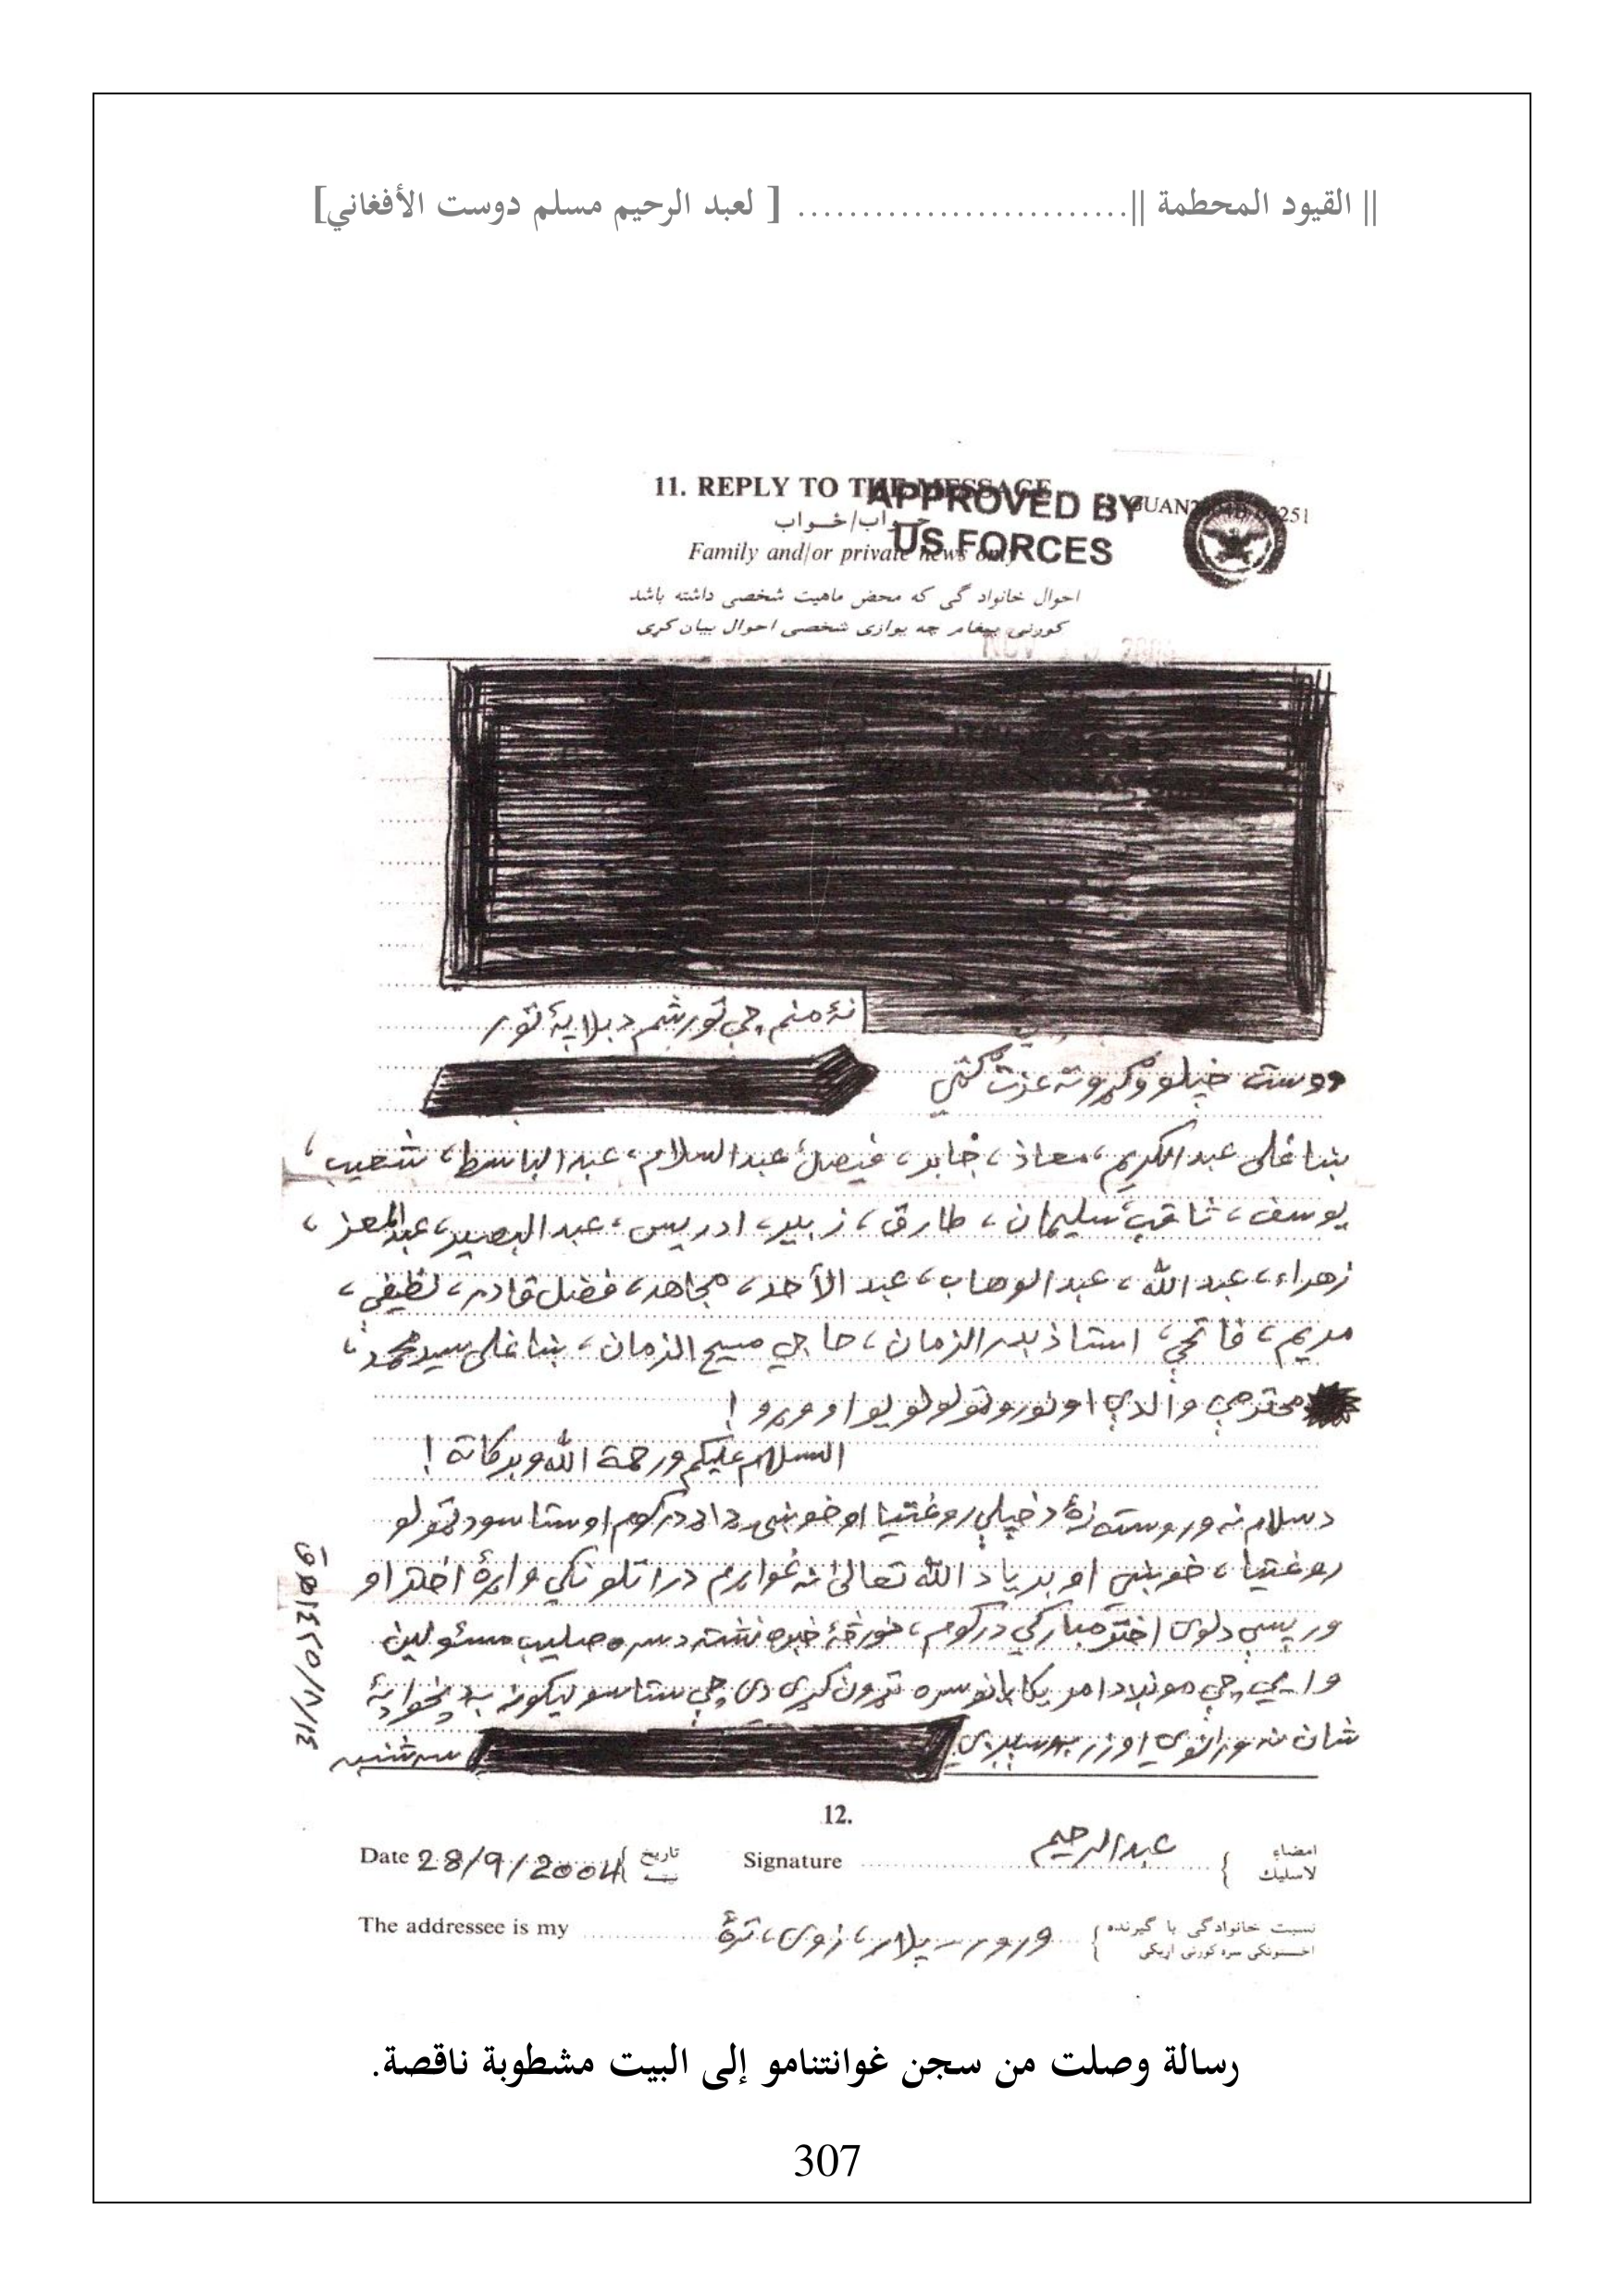 || القيود المحطمة ||.......................... [ لعبد الرحيم مسلم دوست الأفغاني]
11. REPLY TO THE MESSAGE
APPROVED BY
US FORCES
جواب/خواب
Family and/or private news only
احوال خانواد گی که محض ماهیت شخصی داشته باشد
کورنی پیغام چه یوازی شخصی احوال بیان کری
نۀ منم چي تور شم د بلا پۀ تور
دوست خپلو وګړو ته عزت
ښاغلی عبدالکریم، معاذ، جابر، فیصل، عبدالسلام، عبدالباسط، شعیب،
یوسف، ثاقب، سلیمان، طارق، زبیر، ادریس، عبدالبصیر، عبدالمعز،
زهراء، عبدالله، عبدالوهاب، عبدالأحد، مجاهد، فضل قادر، لطیفي،
مریم، فاتحي، استاذ بدرالزمان، حاجي مسیح الزمان، ښاغلی سید محمد،
محترمي والدي او نورو ټولو لویو او وړو!
السلام علیکم ورحمة الله وبرکاته!
د سلام نه وروسته زۀ د خپلي روغتیا او خوښۍ ډاډ درکوم او ستاسو د ټولو
روغتیا، خوښي او بریا د الله تعالیٰ نه غواړم در اتلونکي واړۀ اختر او
ورپسي د لوی اختر مبارکي درکوم، نور څۀ خبره نشته د سره صلیب مسئولین
وایي چي مونږ د امریکایانو سره تړون کړی دی چي ستاسو لیکونه به د پخوا پۀ
شان نه ورانوي او زر به سپیږي
سه شنبه
12.
Date 28/9/2004 تاریخ
Signature عبدالرحیم امضاء
لاسلیک
The addressee is my ورور - پلار، زوی، ترۀ نسبت خانوادگی با گیرنده
اخستونکی سره کورنی اریکی
رسالة وصلت من سجن غوانتنامو إلى البيت مشطوبة ناقصة.
307